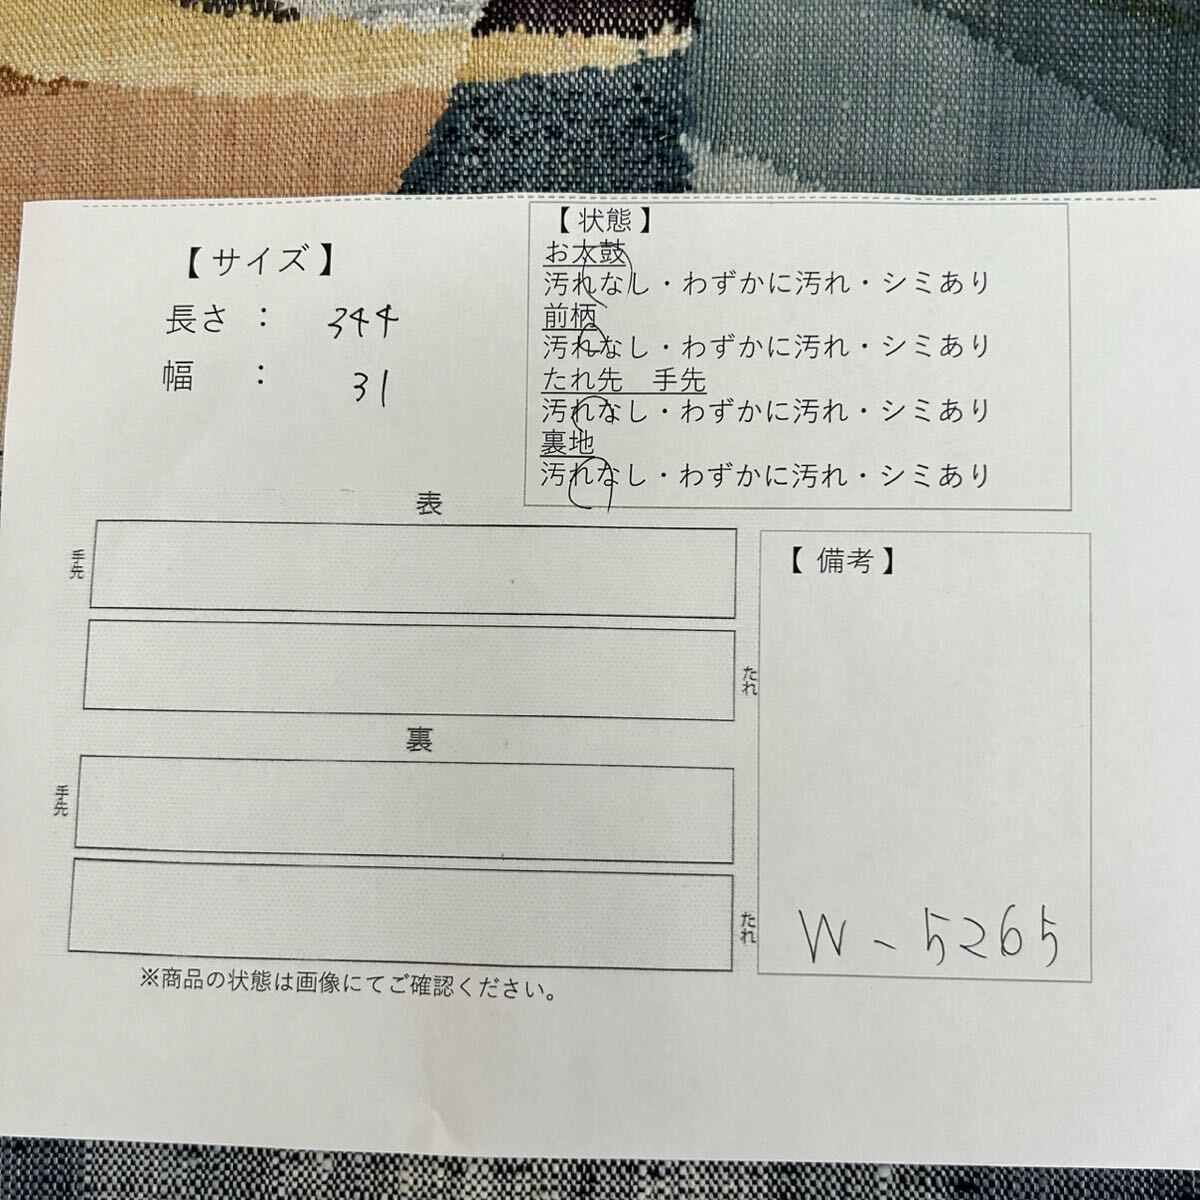 【サイズ】
長さ : 344
幅 : 31
【状態】
お太鼓
汚れなし・わずかに汚れ・シミあり
前柄
汚れなし・わずかに汚れ・シミあり
たれ先　手先
汚れなし・わずかに汚れ・シミあり
裏地
汚れなし・わずかに汚れ・シミあり
表
手先
たれ
裏
手先
たれ
※商品の状態は画像にてご確認ください。
【備考】
W-5265